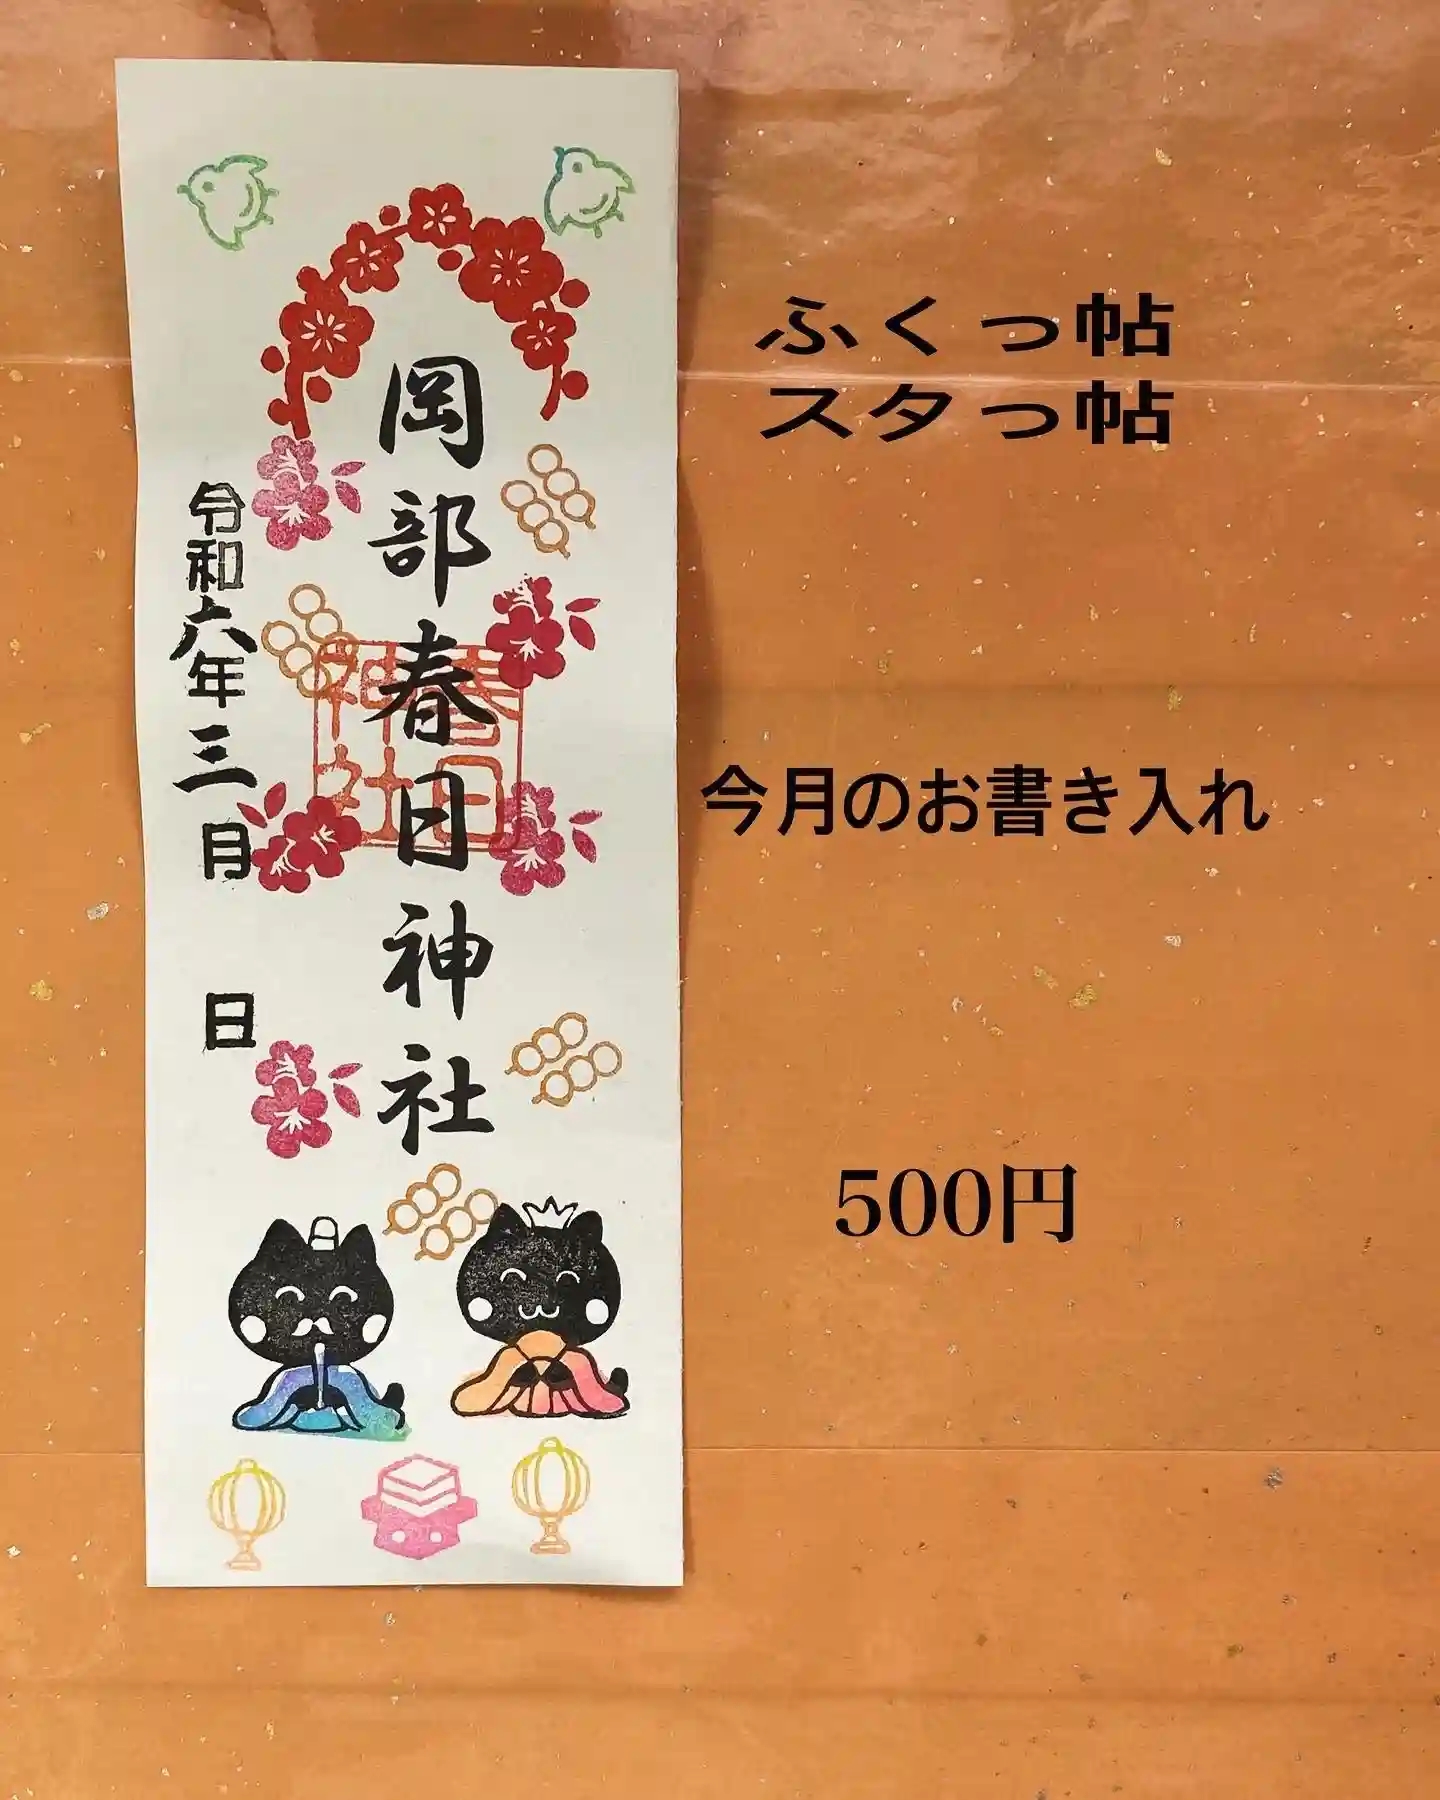 岡部春日神社
春日神社
令和六年三月　日
ふくっ帖
スタっ帖
今月のお書き入れ
500円